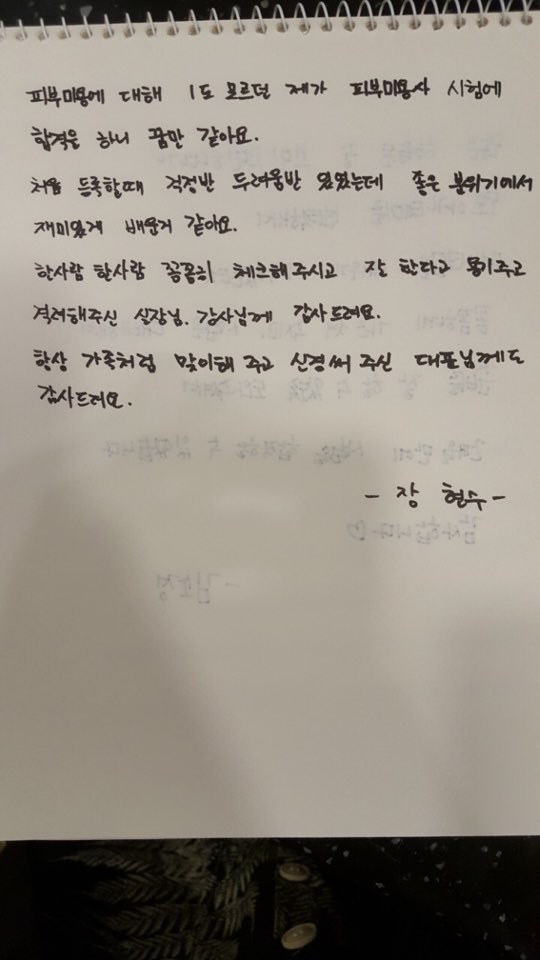 피부미용에 대해 1도 모르던 제가 피부미용사 시험에
합격을 하니 꿈만 같아요.
처음 등록할때 걱정반 두려움반 있었는데 좋은 분위기에서
재미있게 배운거 같아요.
한사람 한사람 꼼꼼히 체크해주시고 잘 한다고 용기주고
격려해주신 실장님. 강사님께 감사드려요.
항상 가족처럼 맞이해 주고 신경써 주신 대표님께도
감사드려요.
- 장 현수 -